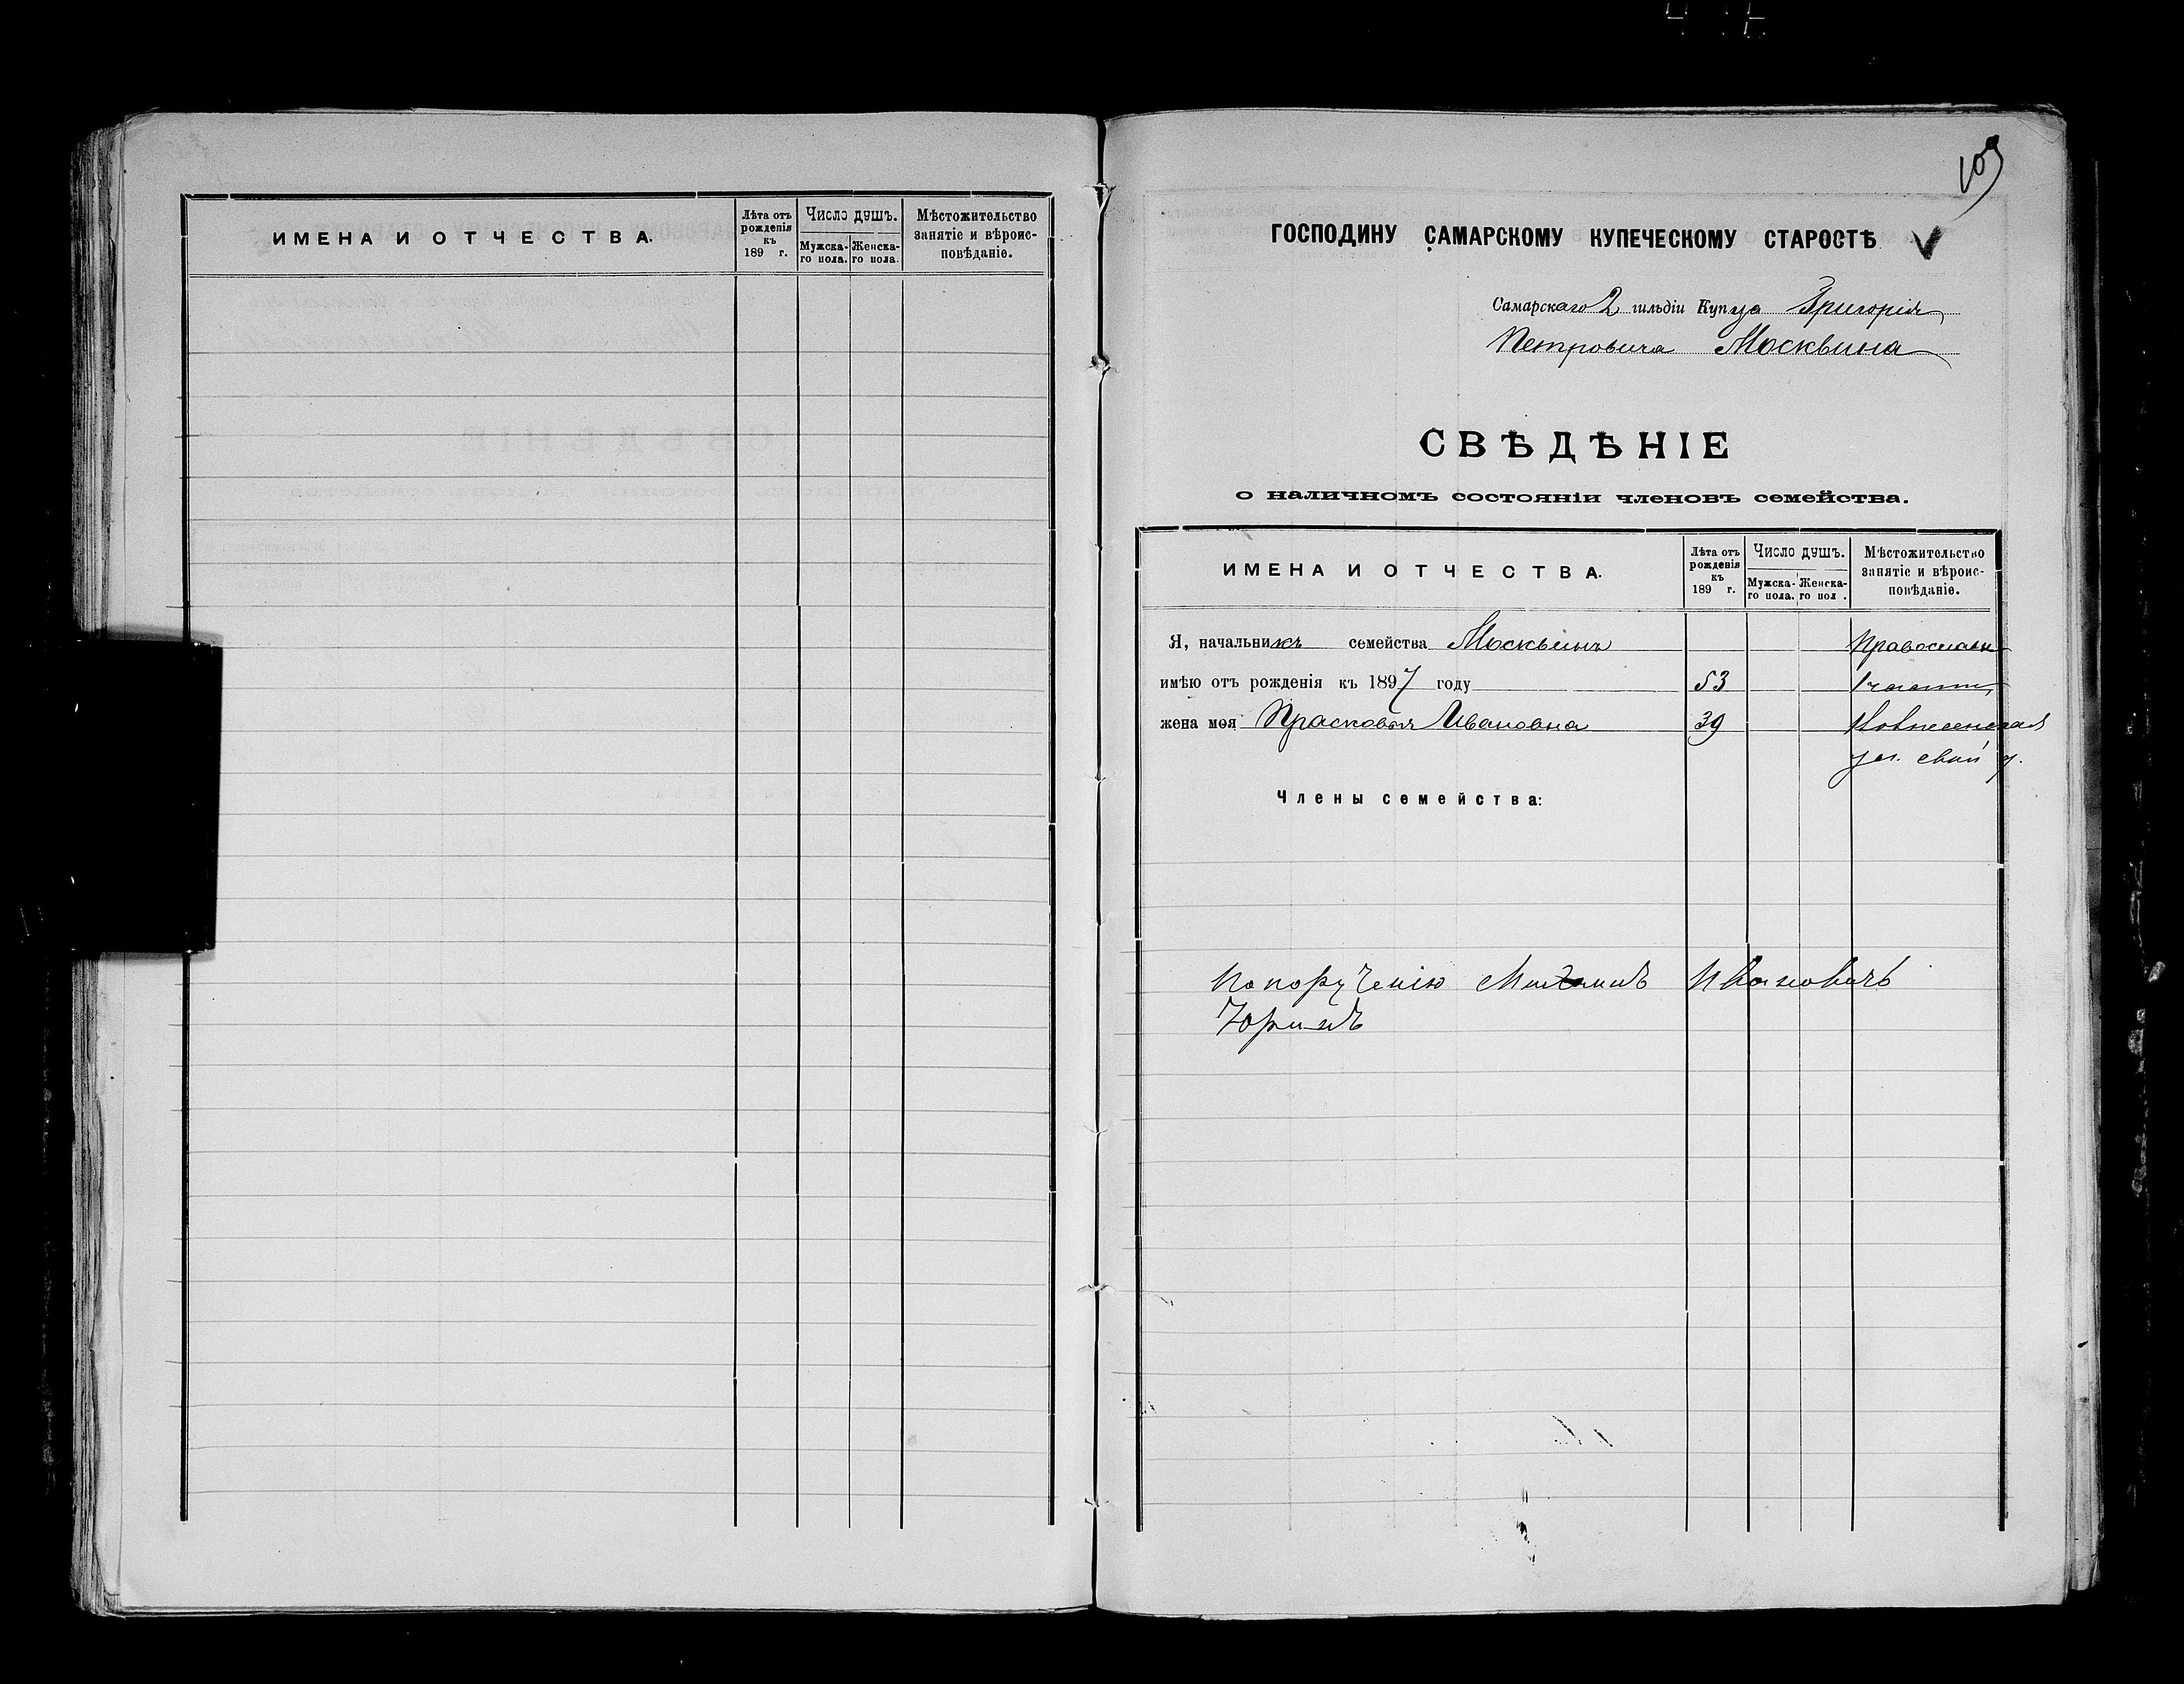 ИМЕНА И ОТЧЕСТВА.
Лѣта отъ рожденія къ 189 г.
Число душъ.
Мужска-го пола.
Женска-го пола.
Мѣстожительство занятіе и вѣроис-повѣданіе.
109
ГОСПОДИНУ САМАРСКОМУ КУПЕЧЕСКОМУ СТАРОСТѢ
Самарскаго 2 гильдіи Купца Григорія
Петровича Москвина
СВѢДѢНІЕ
о наличномъ состояніи членовъ семейства.
ИМЕНА И ОТЧЕСТВА.
Лѣта отъ рожденія къ 189 г.
Число душъ.
Мужска-го пола.
Женска-го пол .
Мѣстожительство занятіе и вѣроис-повѣданіе.
Я, начальникъ семейства Москвинъ Православн
имѣю отъ рожденія къ 1897 году 53 1 части
жена моя Прасковья Ивановна 39
ул. свой д.
Члены семейства:
По порученію Ивановичъ
Юринъ